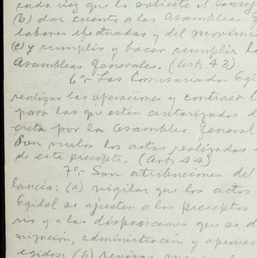 cada vez que lo solicite el Consej
(b) dar cuenta a las Asambleas G
labores efectuadas y del movimie
(c) y cumplir y hacer cumplir lo
Asambleas Generales. (Art. 43)
6°.- Los Comisariados Egid
realizar las operaciones y contraer l
para las que estén autorizados d
creta por la Asamblea General
Son nulos los actos realizados
de este precepto. (Art. 44)
7°.- Son atribuciones de
lancia: (a) vigilar que los actos
Egidal se ajusten a los preceptos
rio y a las disposiciones que se d
nización, administración y aprovec
egidos; (b) revisar